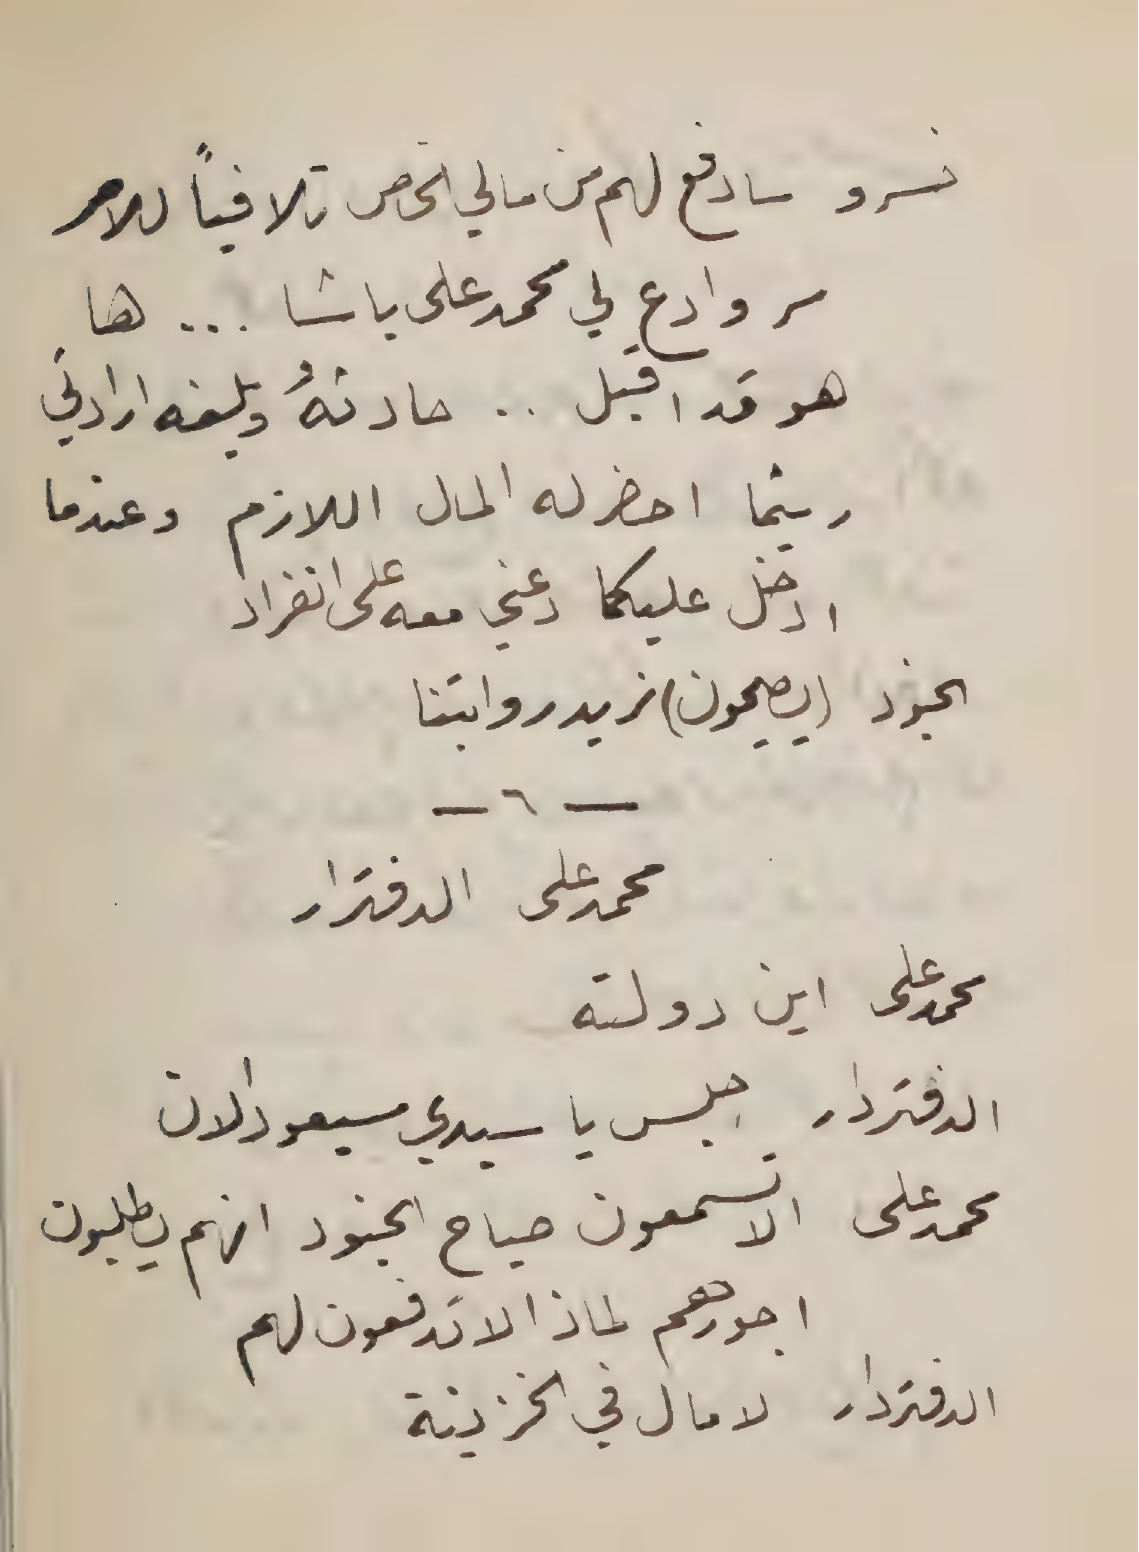 خسرو سادفع لهم من مالي الخاص تلافياً للامر
سر وادع لي محمد على باشا ... ها
هو قد اقبل .. حادثهُ وبلغه ارادتي
ريثما احضر له المال اللازم وعندما
ادخل عليكما دعني معه على انفراد
الجنود (يصيحون) نريد رواتبنا
— ٦ —
محمد على الدفتردار
محمد على اين دولته
الدفتردار اجلس يا سيدي سيعود الان
محمد على الا تسمعون صياح الجنود انهم يطلبون
اجورهم لماذا لا تدفعون لهم
الدفتردار لا مال في الخزينة